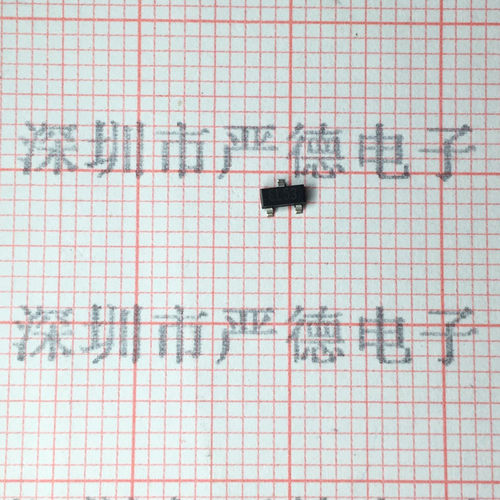 深圳市严德电子
深圳市严德电子